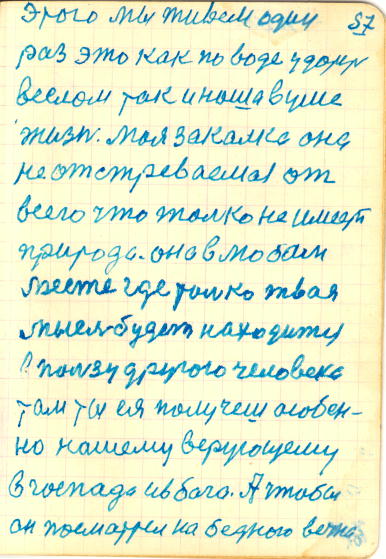 57
этого мы живем один
раз это как по воде удари
веслом так и наша в уме
жизн. моя закалка она
не отстреваемая от
всего что толко не имеет
природа. она в любом
месте где толко твоя
мысля будет находитц
в ползу другого человека
там ты ея получеш особен-
но нашему верующему
в господа и в бога. А чтобы
он посматрел на бедного